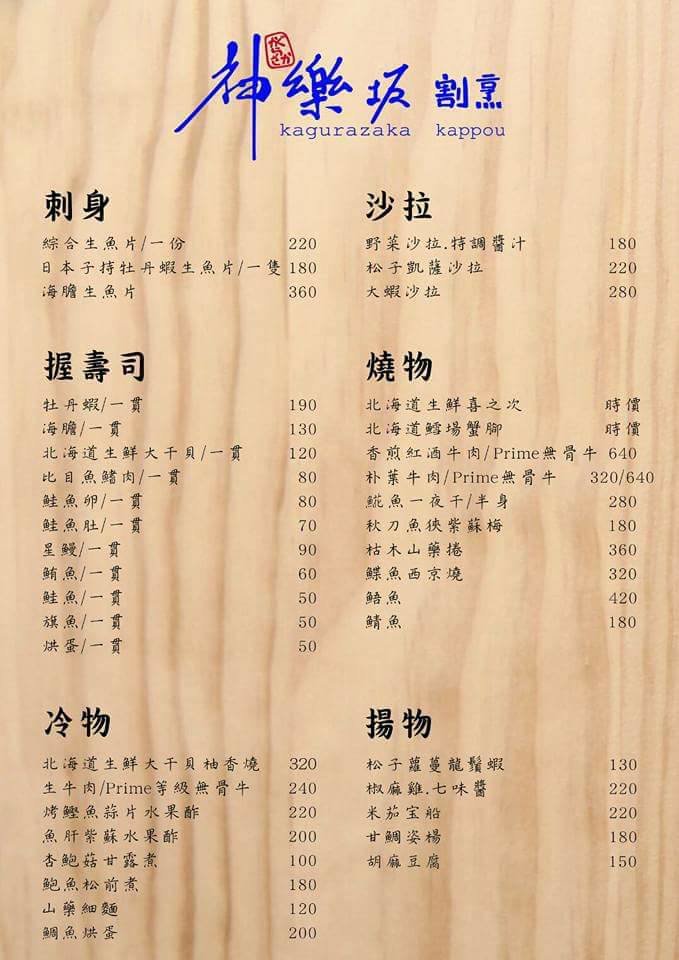 神樂坂 割烹
かぐらざか
kagurazaka kappou
刺身
綜合生魚片/一份 220
日本子持牡丹蝦生魚片/一隻 180
海膽生魚片 360
握壽司
牡丹蝦/一貫 190
海膽/一貫 130
北海道生鮮大干貝/一貫 120
比目魚鰭肉/一貫 80
鮭魚卵/一貫 80
鮭魚肚/一貫 70
星鰻/一貫 90
鮪魚/一貫 60
鮭魚/一貫 50
旗魚/一貫 50
烘蛋/一貫 50
冷物
北海道生鮮大干貝柚香燒 320
生牛肉/Prime等級無骨牛 240
烤鰹魚蒜片水果酢 220
魚肝紫蘇水果酢 200
杏鮑菇甘露煮 100
鮑魚松前煮 180
山藥細麵 120
鯛魚烘蛋 200
沙拉
野菜沙拉.特調醬汁 180
松子凱薩沙拉 220
大蝦沙拉 280
燒物
北海道生鮮喜之次 時價
北海道鱈場蟹腳 時價
香煎紅酒牛肉/Prime無骨牛 640
朴葉牛肉/Prime無骨牛 320/640
䱀魚一夜干/半身 280
秋刀魚挾紫蘇梅 180
枯木山藥捲 360
鰈魚西京燒 320
鯃魚 420
鯖魚 180
揚物
松子蘿蔓龍鬚蝦 130
椒麻雞.七味醬 220
米茄宝船 220
甘鯛姿楊 180
胡麻豆腐 150